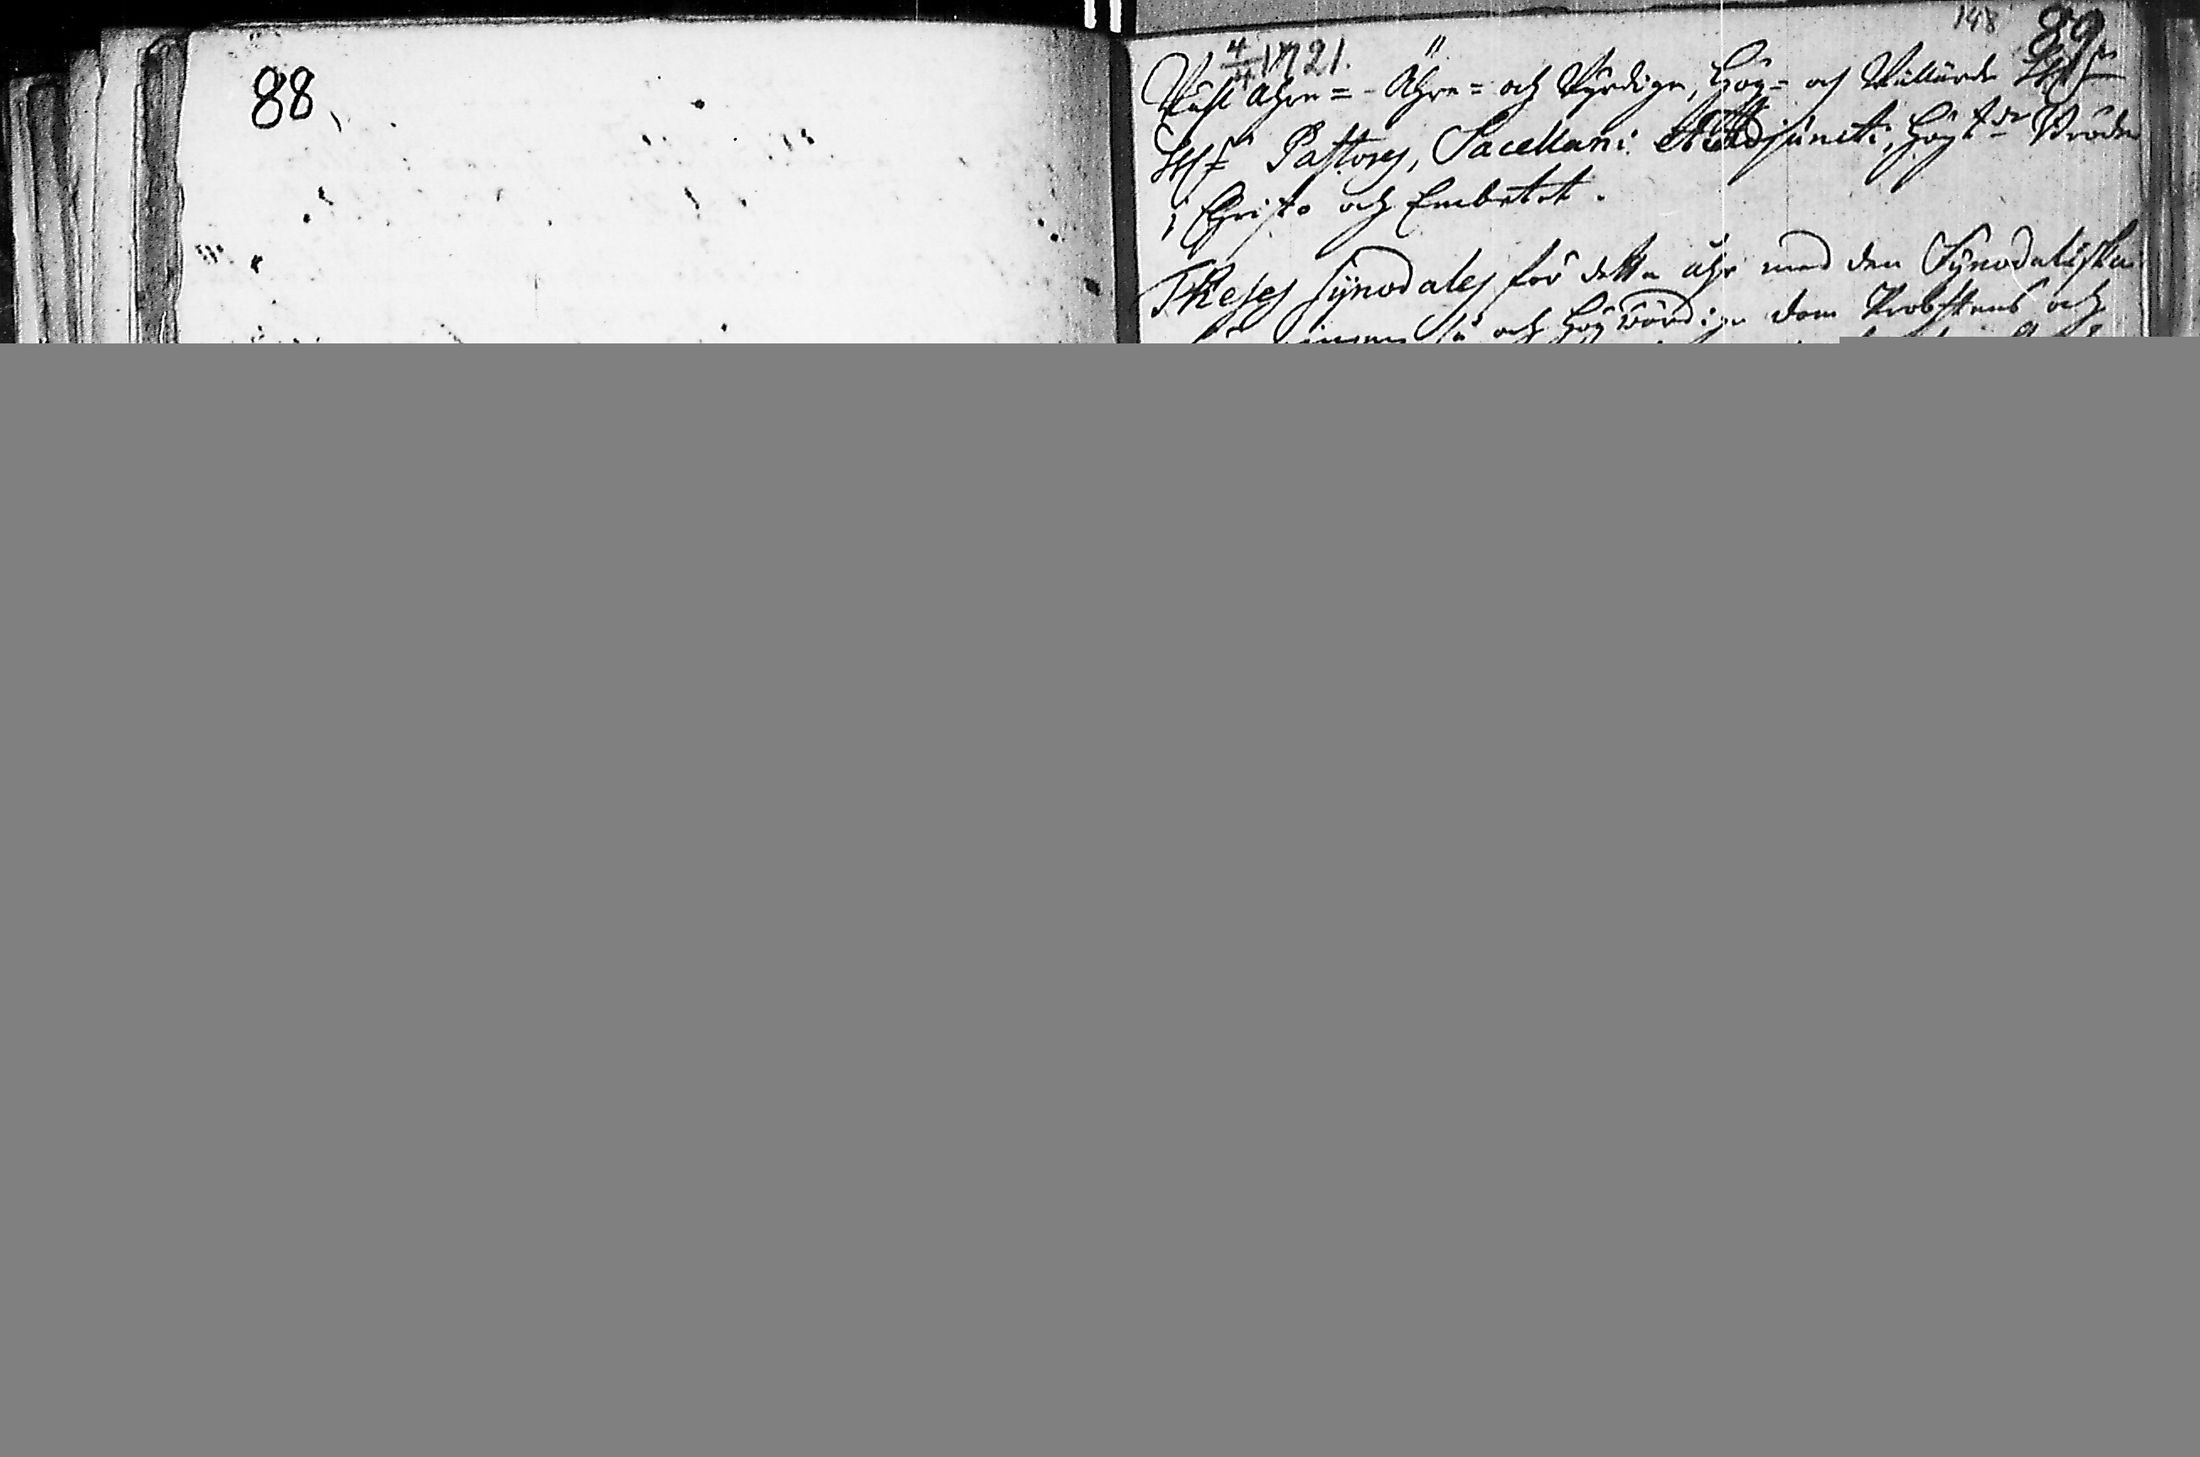 88
148 89
4/4 1721.
Wäl Ähre- Ähre- och Wyrdige, Hög- och Wällärde
Pastores, Sacellani Adjuncti, Högt Bröder
i Christo och Embetet.
Theses Synodales för detta åhr med den Synodaliska
och Högwördige dom Probstens och